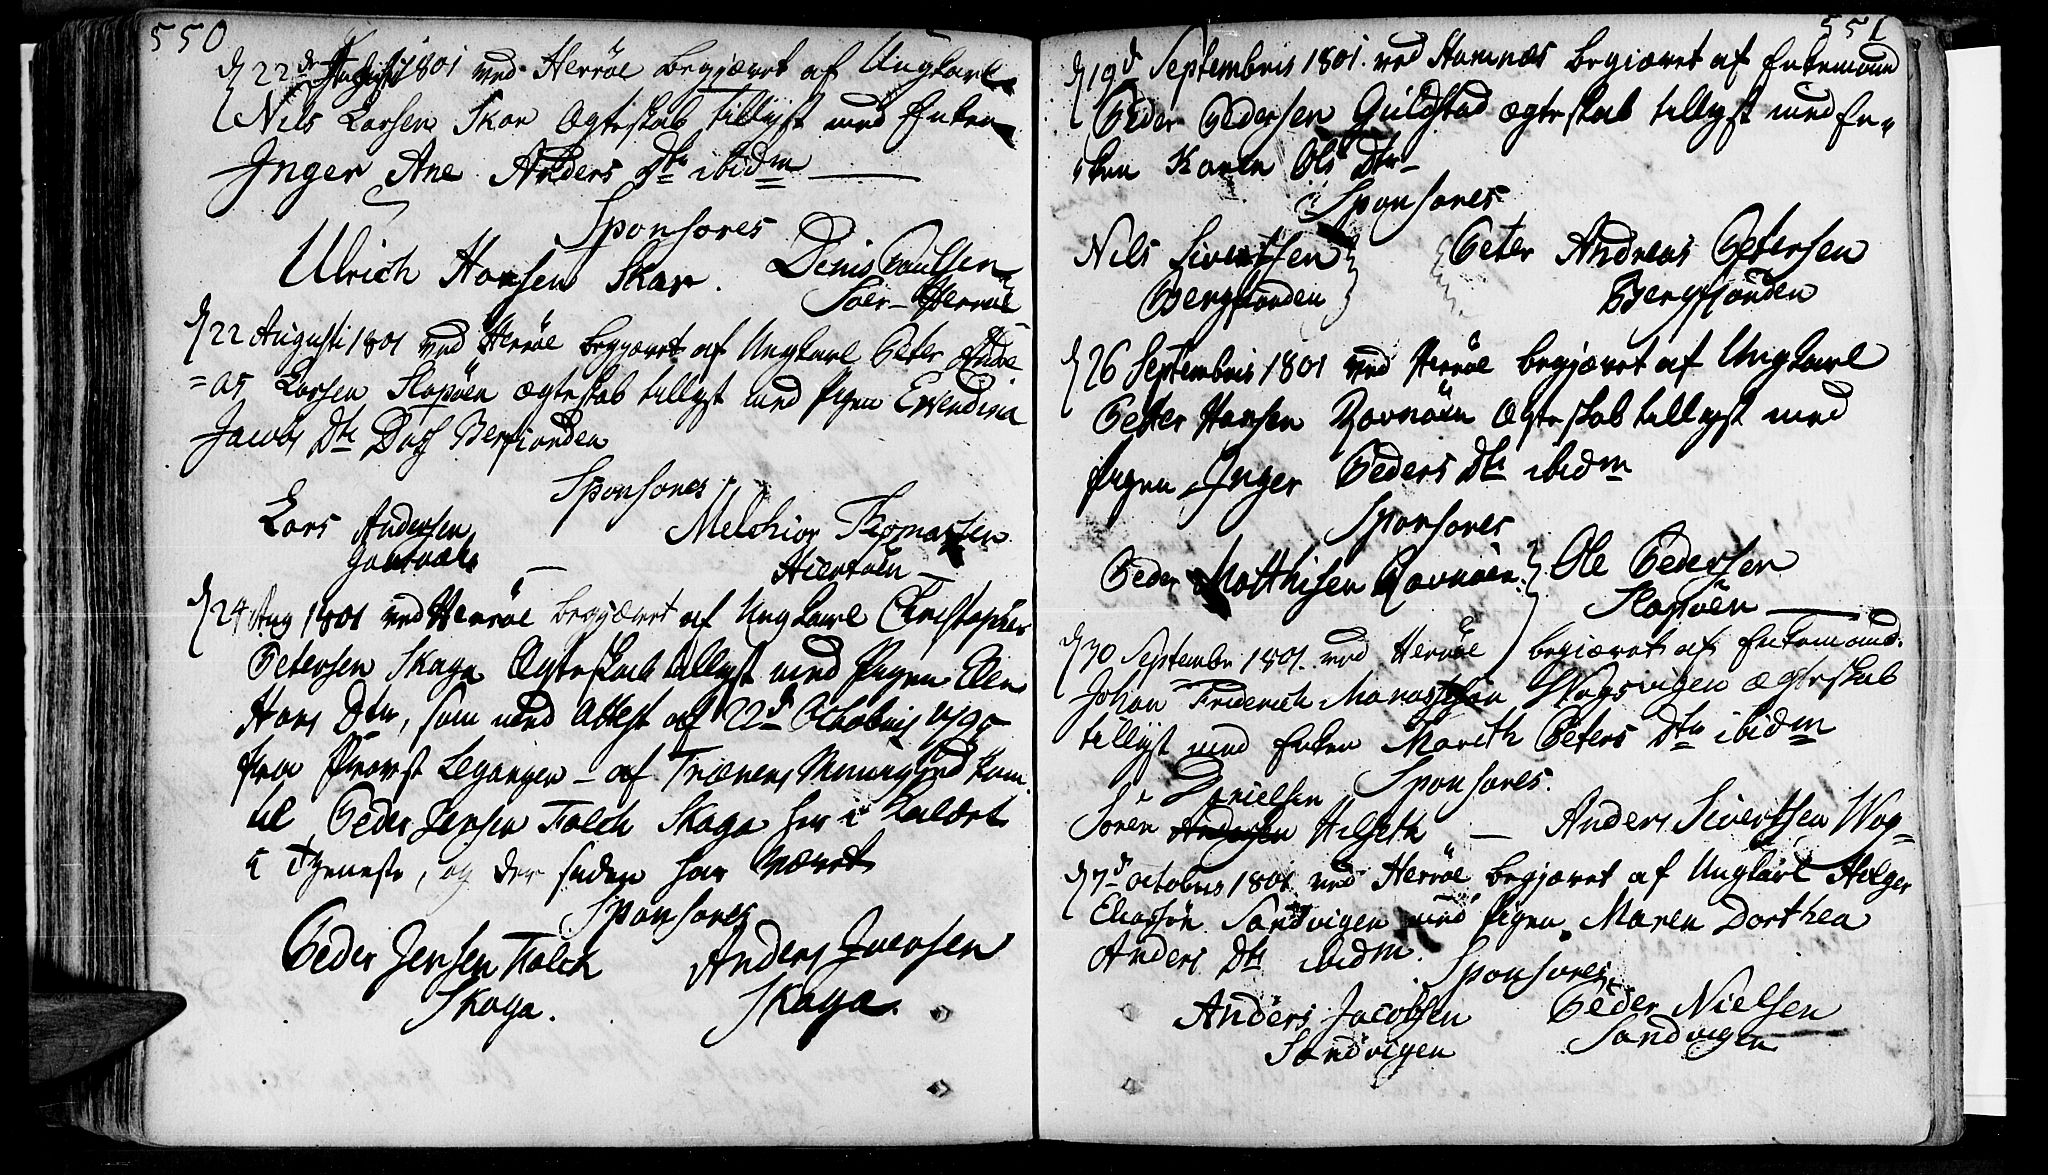 550
d 22de Augusti 1801 ved Herröe begiæret af Ungkarl
Nils Larsen Skar Ægteskab tillyst med Enken
Inger Ane Anders Dtr ibidm
Sponsores
Ulrich Hansen Skar. Dinis Poulsen
Söer-Herröe
d 22 Augusti 1801 ved Herröe begjæret af Ungkarl Peter Andre
=as Larsen Slapöen ægteskab tillyst med Pigen
Jacobs Dtr
Sponsores
Lars Andersen Melchior Thomassen
Hiertöen
d 24 Aug 1801 ved Herröe begjæret af Ungkarl Christopher
Petersen Skaga Ægteskab tillyst med Pigen Elen
Hans Dtr, som med Attest af 22d Octobris
fra Provst Legangen - af Trænens Menighed kom
til Peder Jensen Falch Skaga her i Kaldet
i Tjeneste, og der siden har været
Sponsores
Peder Jensen Falch Anders Iversen
Skaga. Skaga.
551
d 19d Septembris 1801. ved Hamnæs begiæret af Enkemand
Peder Pedersen Guldstad ægteskab tillyst med En„
„ken Karen Ols Dtr
Sponsores
Nils Sivertsen Peter Andreas Petersen
Bergfiorden Bergfjorden
d 26 Septembris 1801 ved Herröe begjæret af Ungkarl
Petter Hansen Ravnöen Ægteskab tillyst med
Pigen Inger Peders Dtr ibidm
Sponsores
Peder Matthisen Ravnöen. Ole Pedersen
Slapöen
d 30 Septembr 1801. ved Herröe begiæret af Enkemand.
Johan Friderich Manassesen Wogsvigen ægteskab
tillyst med Enken Marith Peters Dtr ibidm
Danielsen Sponsores.
Sören Andersen Hilseth - Anders Sivertsen Wog=
d 7d octobris 1801 ved Herröe begjæret af Ungkarl Holger
Eliassön Sandvigen med Pigen Maren Dorthea
Anders Dtr ibidm.
Sponsores
Anders Jacobsen Peder Nielsen
Sandvigen Sandvigen